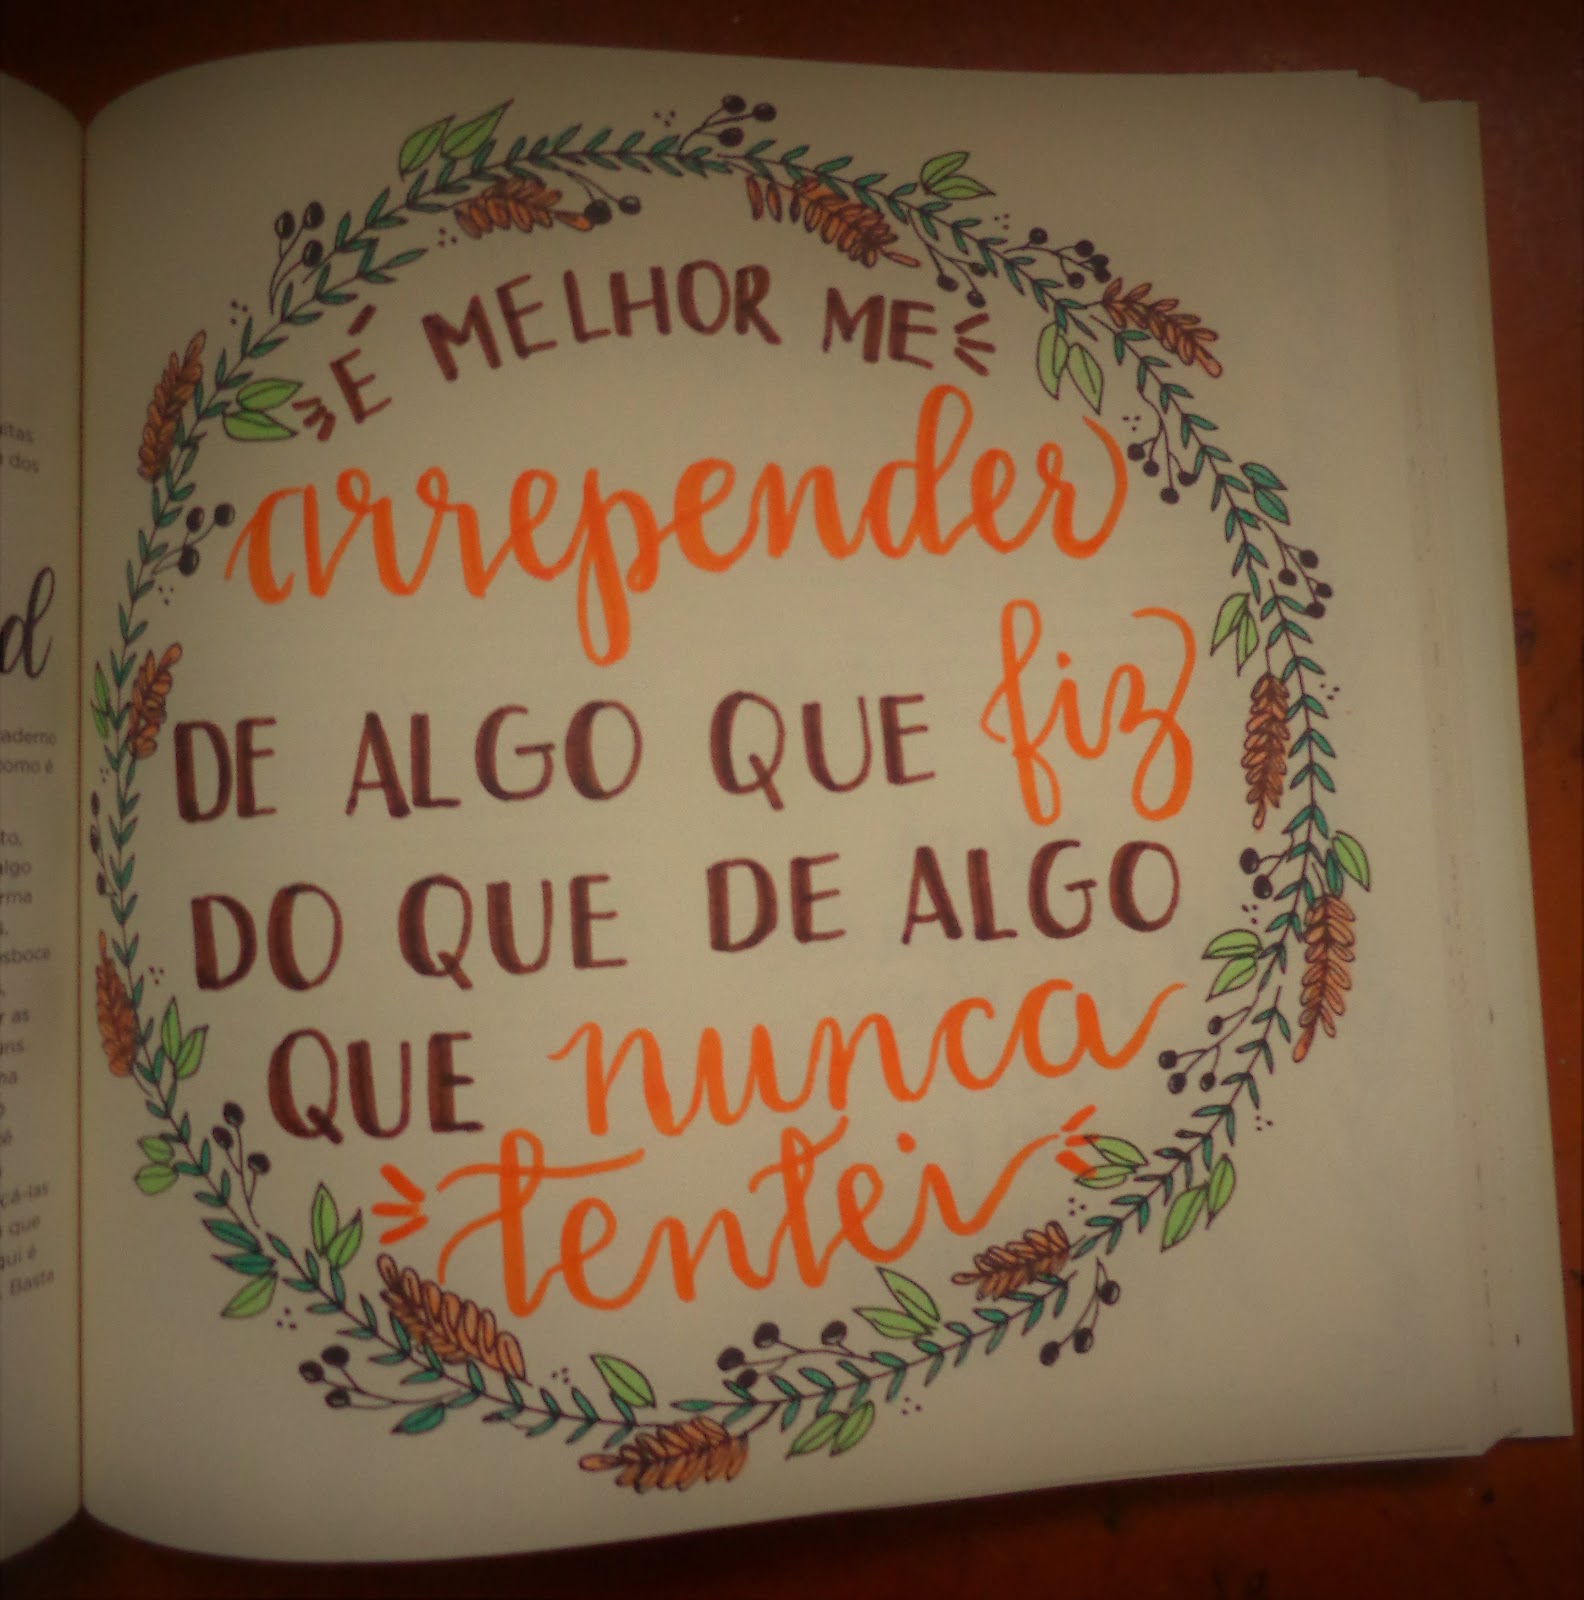 itas
dos
d
caderno
como é
to,
algo
rma
esboce
r as
cá-las
que
qui é
. Basta
É MELHOR ME
arrepender
DE ALGO QUE fiz
DO QUE DE ALGO
QUE nunca
tentei